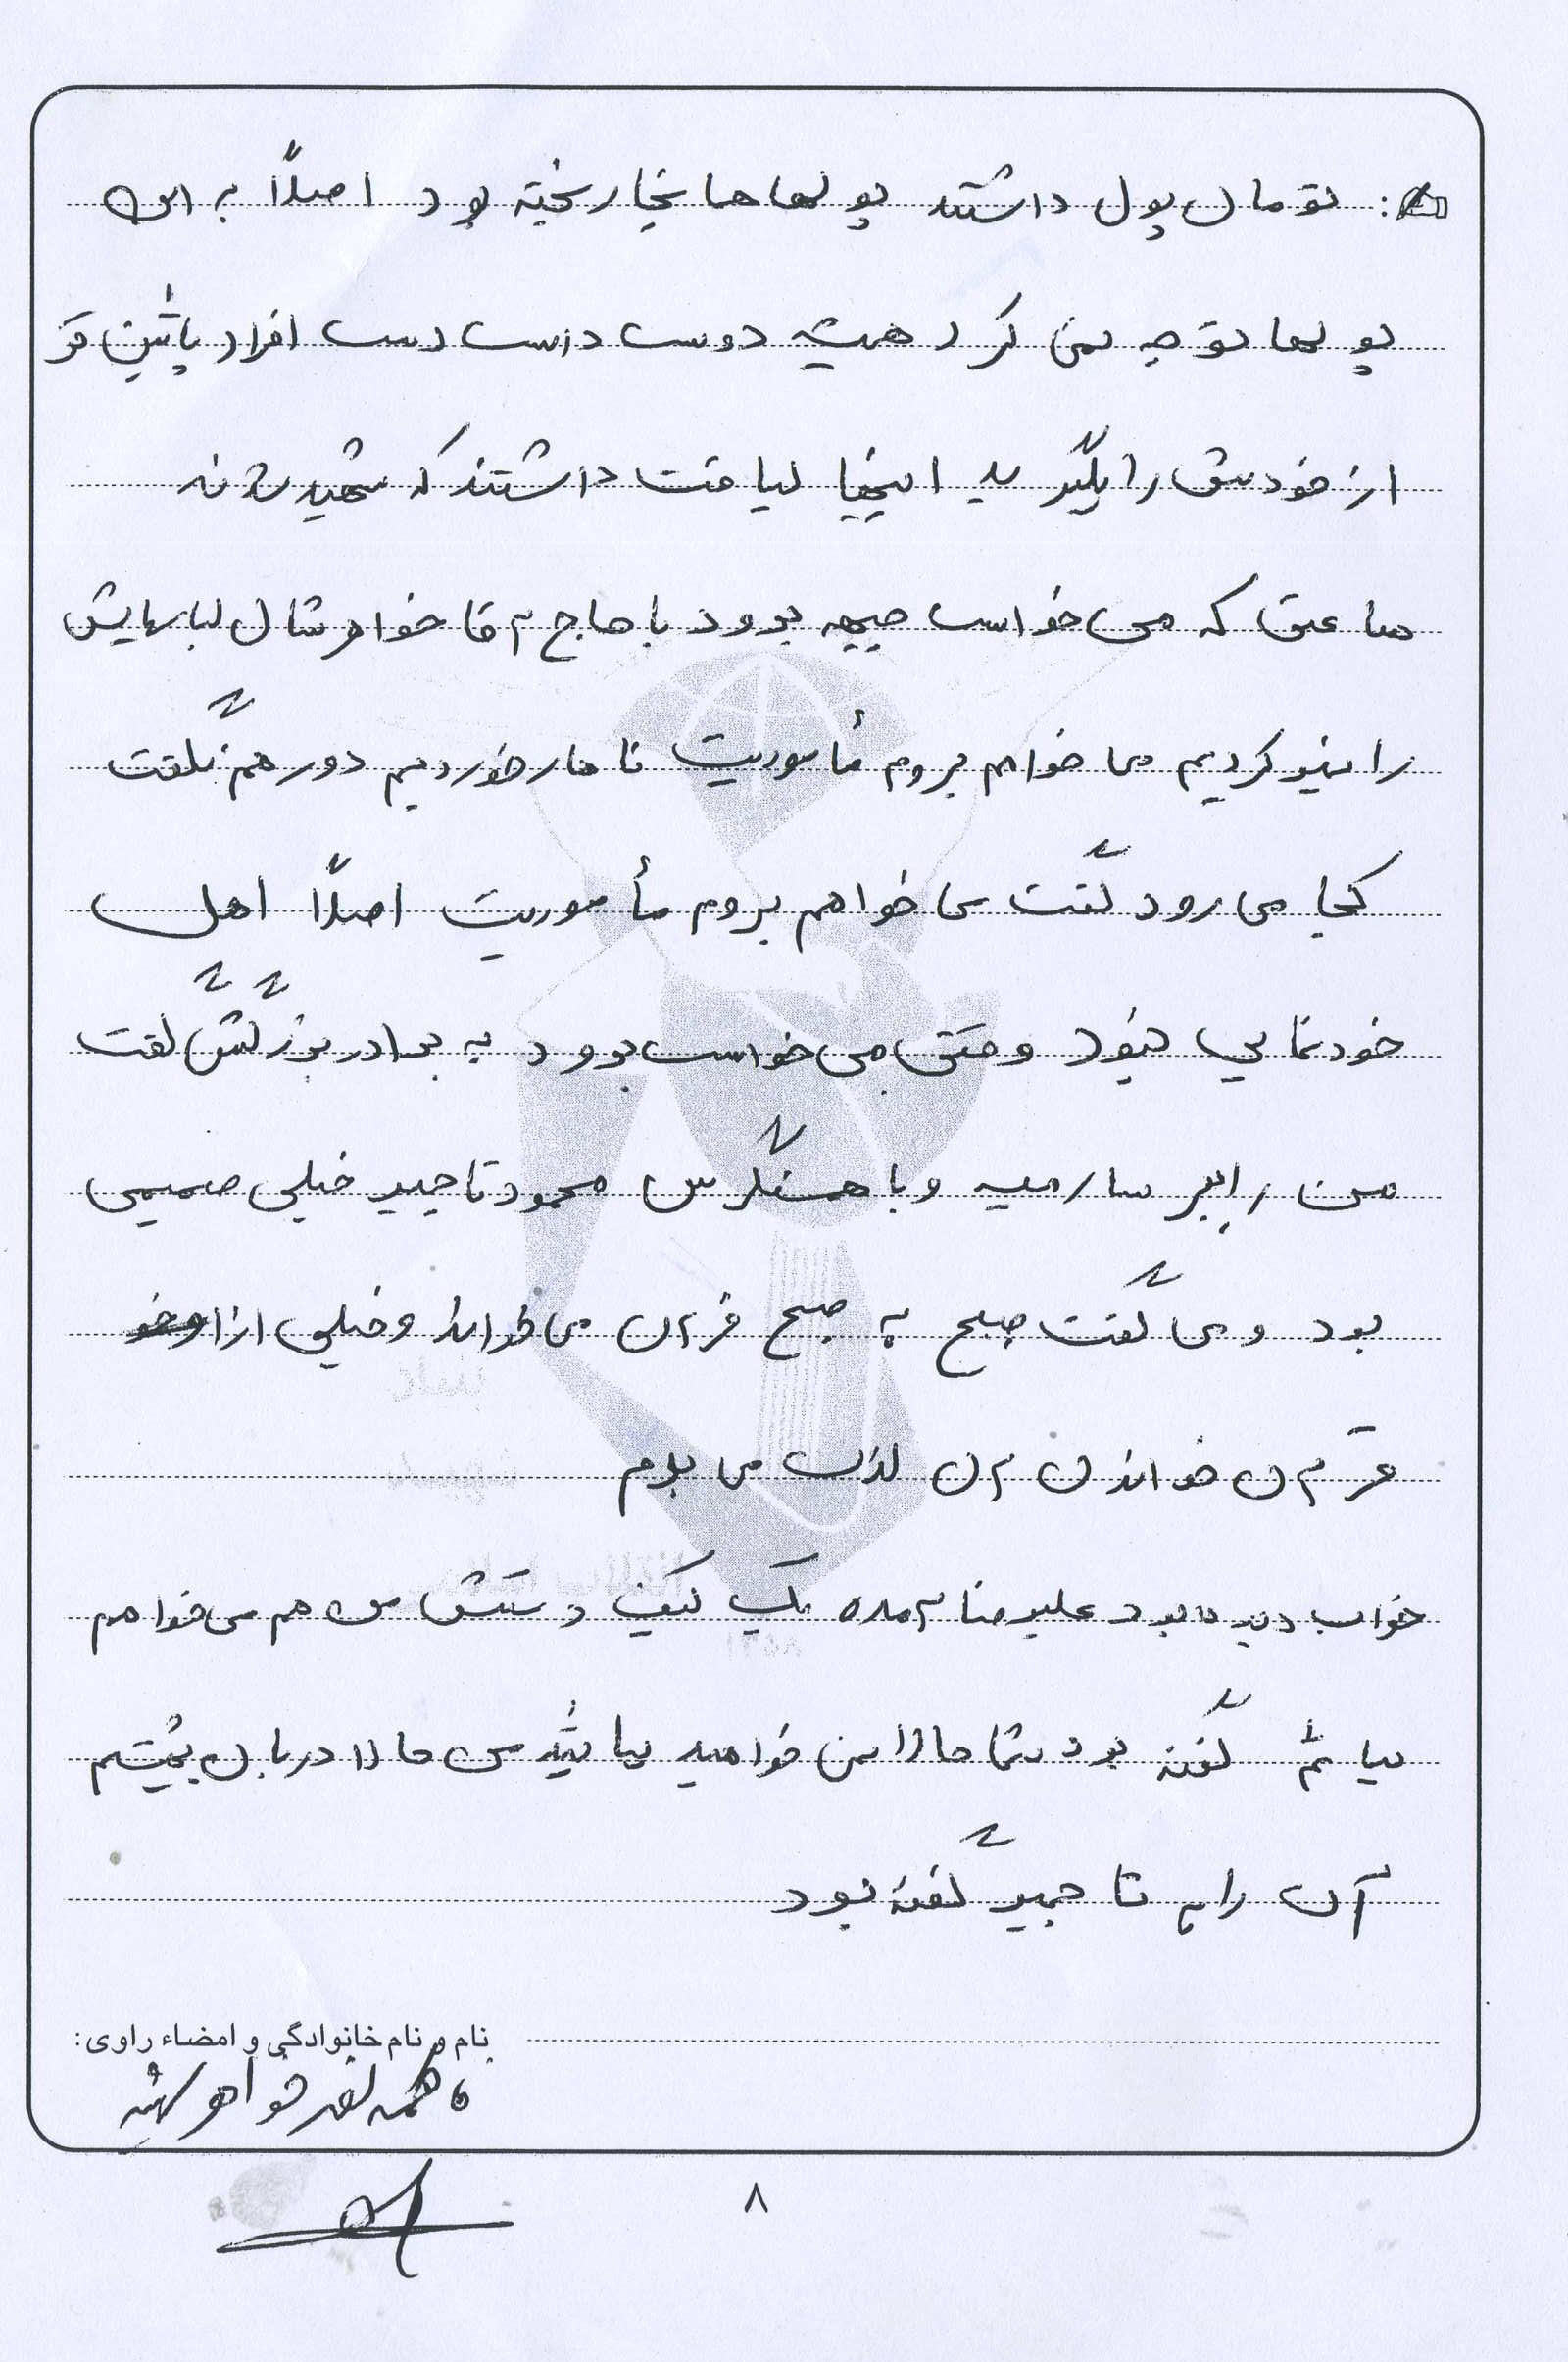 تومان پول داشتند پولها هما نجا ریخته بود اصلاً به این
پولها توجه نمی کرد همیشه دوست داست دست افراد پائین تر
از خودش را بگیرد اینها لیاقت داشتند که شهید شدند
ساعتی که می خواست جبهه برود با حاج آقا خواهر شال لباسهایش
را کردیم می خواهم بروم مأموریت ناهار خوردیم دور هم نگفت
کجا می رود گفت می خواهم بروم مأموریت اصلاً اهل
خودنمایی نبود وقتی می خواست برود به برادر بزرگش گفت
من را ببر و با همسنگرش محمود تاجیـد خیلی صمیمی
بود و می گفت صبح به صبح قرآن می خواند و خیلی از
قرآن خواندن آن لذت می بردم
خواب دیده بود علیرضا آمده یک کیف دستش من هم می خواهم
بیائم گفته بود شما حالا نمی خواهید بیائید من حالا دربان بهشتم
آن را به تاجیـد گفته بود
نام و نام خانوادگی و امضاء راوی:
خواهر شهید
۸